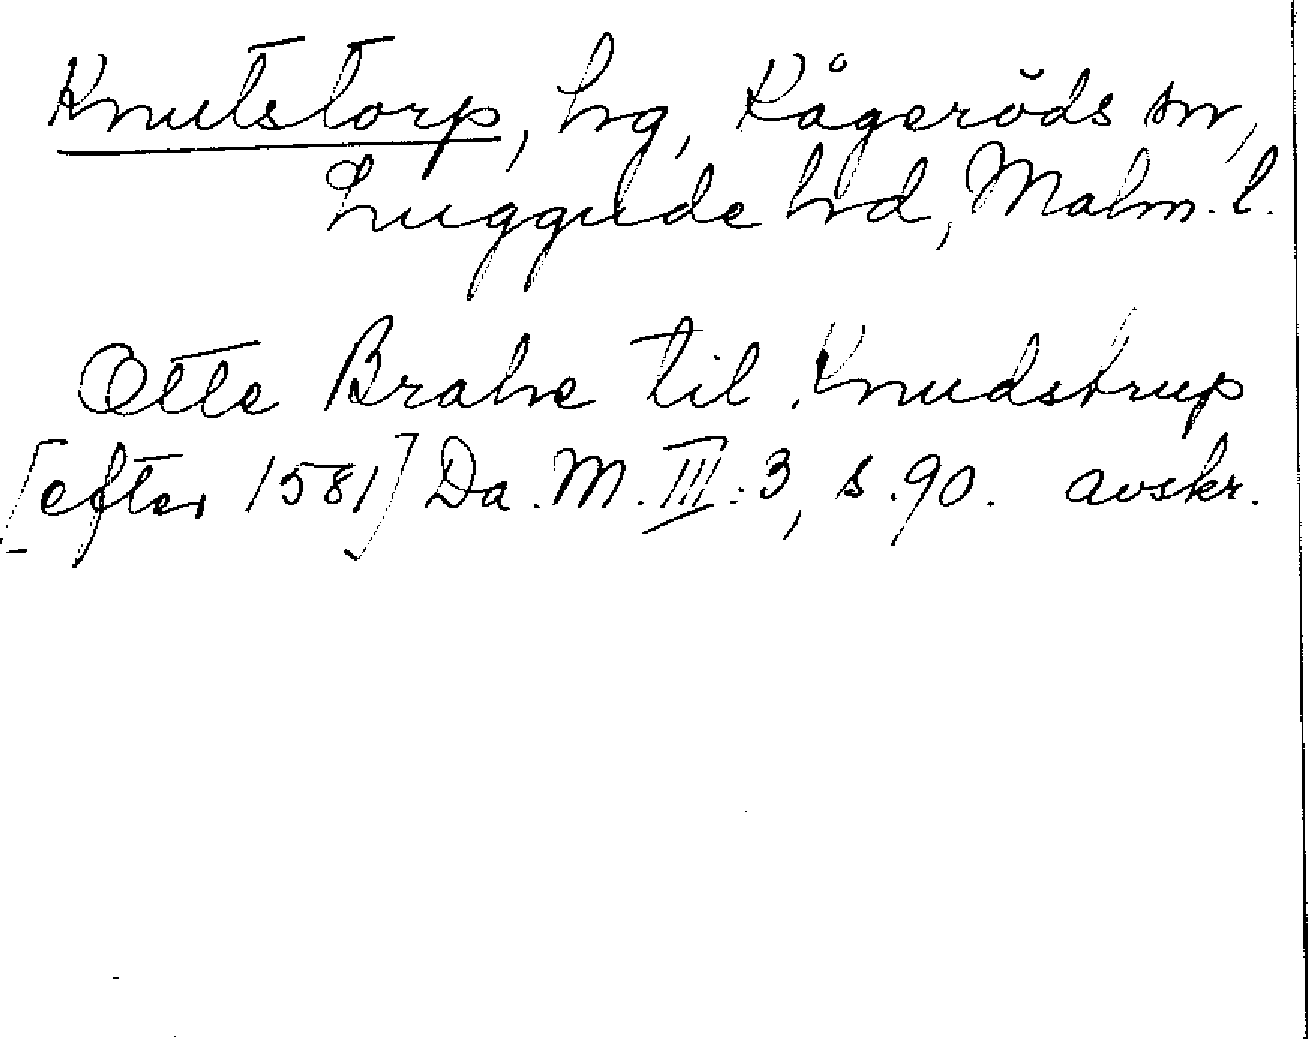 Knutstorp, hg, Kågeröds sn,
Luggude hd, Malm. l.
Otte Brahe til Knudstrup
[efter 1581] Da. M. III: 3, s. 90. avskr.